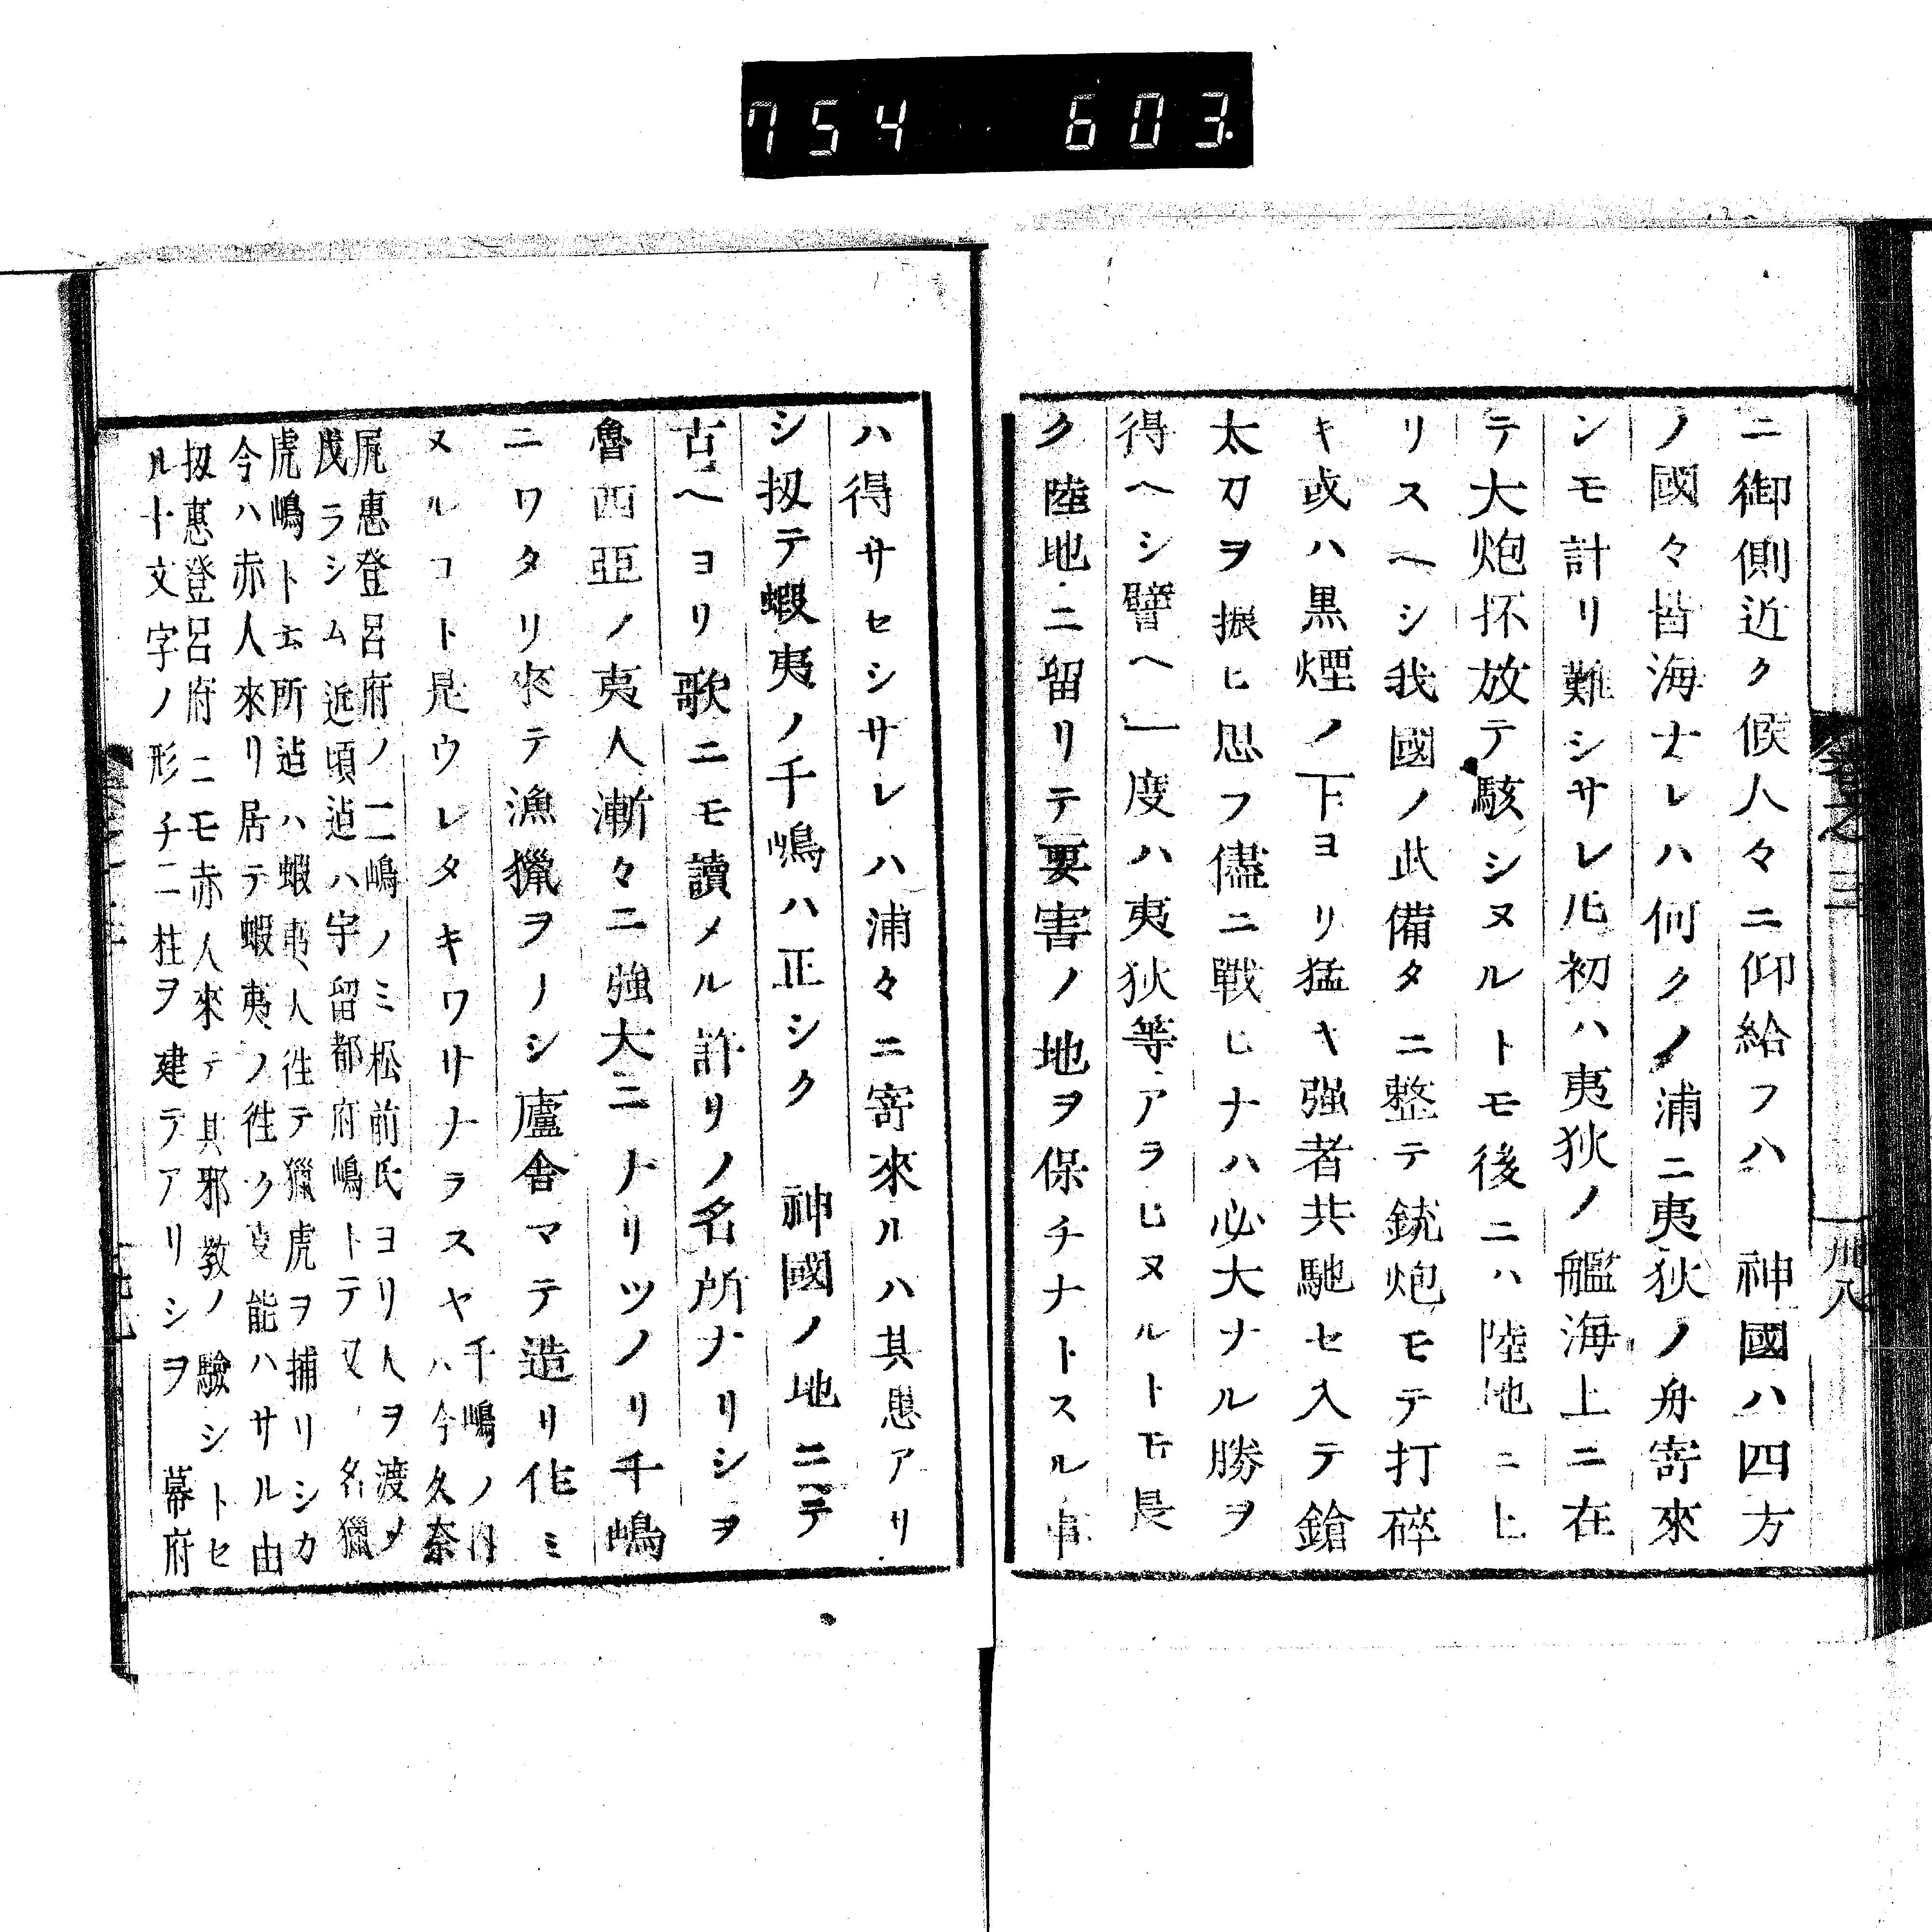 754 603
巻之三
卅八
ニ御側近ク候人々ニ仰給フハ 神國ハ四方
ノ國々皆海ナレハ何クノ浦ニ夷狄ノ舟寄來
ンモ計リ難シサレ𪜈初ハ夷狄ノ艦海上ニ在
テ大炮抔放テ駭シヌルトモ後ニハ陸地ニ上
リスヘシ我國ノ武備タニ整テ銃炮モテ打碎
キ或ハ黒煙ノ下ヨリ猛キ强者共馳セ入テ鎗
太刀ヲ振ヒ思フ儘ニ戰ヒナハ必大ナル勝ヲ
得ヘシ譬ヘ一度ハ夷狄等アラヒヌルト𪜈長
ク陸地ニ留リテ要害ノ地ヲ保チナトスル事
ハ得サセシサレハ浦々ニ寄來ルハ其患アリ
シ扨テ蝦夷ノ千嶋ハ正シク 神國ノ地ニテ
古ヘヨリ歌ニモ讀メル許リノ名所ナリシヲ
魯西亞ノ夷人漸々ニ強大ニナリツノリ千嶋
ニワタリ來テ漁獵ヲノシ廬舎マテ造リ作ミ
ヌルコト見ウレタキワサナラスヤ 千嶋ノ内
ハ今久奈
尻惠登呂府ノ二嶋ノミ松前氏ヨリ人ヲ渡メ
戌ラシム近頃迠ハ宇留都府嶋トテ又ノ名獵
虎嶋ト云所迠ハ蝦夷人徃テ獵虎ヲ捕リシカ
今ハ赤人來リ居テ蝦夷ノ徃ク叓能ハサル由
扨惠登呂府ニモ赤人來テ其邪教ノ驗シトセ
ル十文字ノ形チ二柱ヲ建テアリシヲ 幕府